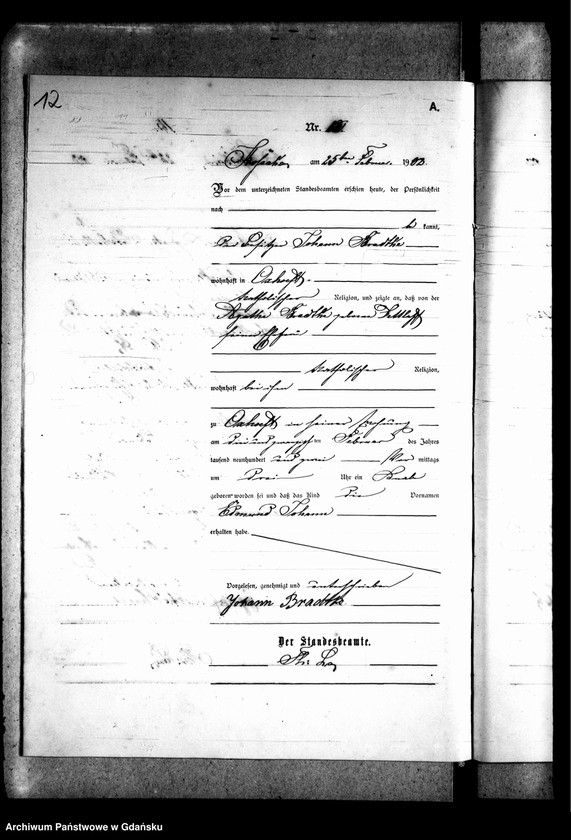 12
A.
Nr.
am 25ten Februar 1902.
Vor dem unterzeichneten Standesbeamten erschien heute, der Persönlichkeit
nach
be kannt,
der Besitzer Johann Bradtke
wohnhaft in Oxhoeft
katholischer Religion, und zeigte an, daß von der
Agathe Bradtke geborene
seiner Ehefrau
katholischer Religion,
wohnhaft bei ihm
zu Oxhoeft in seiner Wohnung
am dreiundzwanzigsten Februar des Jahres
tausend neunhundert und zwei Vor mittags
um drei Uhr ein Knabe
geboren worden sei und daß das Kind die Vornamen
Edmund Johann
erhalten habe.
Vorgelesen, genehmigt und unterschrieben
Johann Bradtke
Der Standesbeamte.
Archiwum Państwowe w Gdańsku